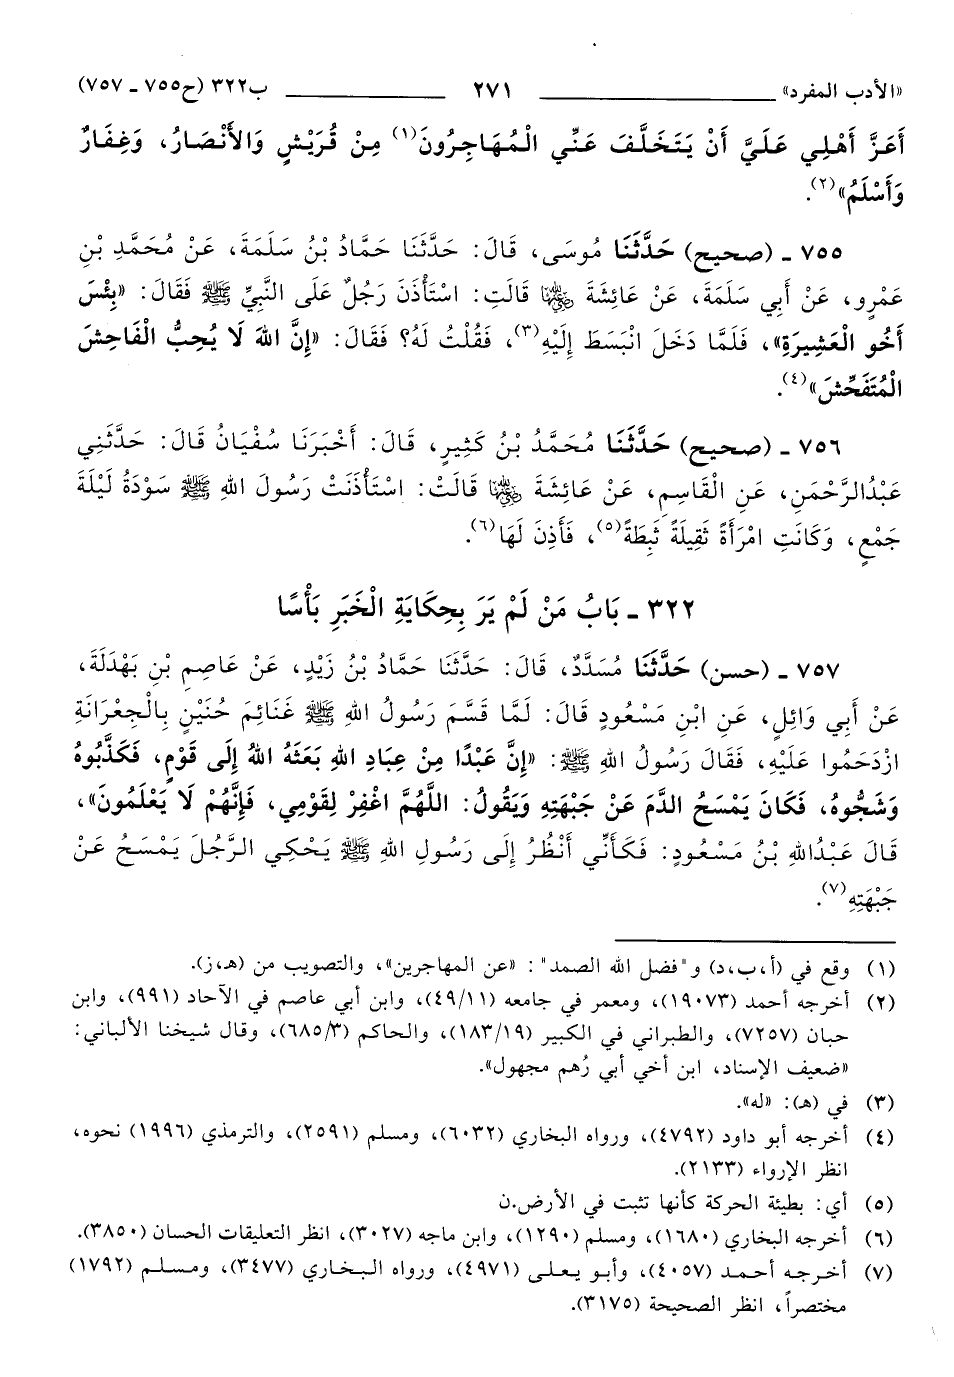 «الأدب المفرد» ٢٧١ ب٣٢٢ (ح٧٥٥ ـ ٧٥٧)
أَعَزَّ أَهْلِي عَلَيَّ أَنْ يَتَخَلَّفَ عَنِّي الْمُهَاجِرُونَ(١) مِنْ قُرَيْشٍ وَالأَنْصَارُ، وَغِفَارٌ
وَأَسْلَمُ»(٢).
٧٥٥ ـ (صحيح) حَدَّثَنَا مُوسَى، قَالَ: حَدَّثَنَا حَمَّادُ بْنُ سَلَمَةَ، عَنْ مُحَمَّدِ بْنِ
عَمْرٍو، عَنْ أَبِي سَلَمَةَ، عَنْ عَائِشَةَ رضي الله عنها قَالَتِ: اسْتَأْذَنَ رَجُلٌ عَلَى النَّبِيِّ ﷺ فَقَالَ: «بِئْسَ
أَخُو الْعَشِيرَةِ»، فَلَمَّا دَخَلَ انْبَسَطَ إِلَيْهِ(٣)، فَقُلْتُ لَهُ؟ فَقَالَ: «إِنَّ اللهَ لَا يُحِبُّ الْفَاحِشَ
الْمُتَفَحِّشَ»(٤).
٧٥٦ ـ (صحيح) حَدَّثَنَا مُحَمَّدُ بْنُ كَثِيرٍ، قَالَ: أَخْبَرَنَا سُفْيَانُ قَالَ: حَدَّثَنِي
عَبْدُالرَّحْمَنِ، عَنِ الْقَاسِمِ، عَنْ عَائِشَةَ رضي الله عنها قَالَتْ: اسْتَأْذَنَتْ رَسُولَ اللهِ ﷺ سَوْدَةُ لَيْلَةَ
جَمْعٍ، وَكَانَتِ امْرَأَةً ثَقِيلَةً ثَبِطَةً(٥)، فَأَذِنَ لَهَا(٦).
٣٢٢ ـ بَابُ مَنْ لَمْ يَرَ بِحِكَايَةِ الْخَبَرِ بَأْسًا
٧٥٧ ـ (حسن) حَدَّثَنَا مُسَدَّدٌ، قَالَ: حَدَّثَنَا حَمَّادُ بْنُ زَيْدٍ، عَنْ عَاصِمِ بْنِ بَهْدَلَةَ،
عَنْ أَبِي وَائِلٍ، عَنِ ابْنِ مَسْعُودٍ قَالَ: لَمَّا قَسَّمَ رَسُولُ اللهِ ﷺ غَنَائِمَ حُنَيْنٍ بِالْجِعْرَانَةِ
ازْدَحَمُوا عَلَيْهِ، فَقَالَ رَسُولُ اللهِ ﷺ: «إِنَّ عَبْدًا مِنْ عِبَادِ اللهِ بَعَثَهُ اللهُ إِلَى قَوْمٍ، فَكَذَّبُوهُ
وَشَجُّوهُ، فَكَانَ يَمْسَحُ الدَّمَ عَنْ جَبْهَتِهِ وَيَقُولُ: اللَّهُمَّ اغْفِرْ لِقَوْمِي، فَإِنَّهُمْ لَا يَعْلَمُونَ»،
قَالَ عَبْدُاللهِ بْنُ مَسْعُودٍ: فَكَأَنِّي أَنْظُرُ إِلَى رَسُولِ اللهِ ﷺ يَحْكِي الرَّجُلَ يَمْسَحُ عَنْ
جَبْهَتِهِ(٧).
(١) وقع في (أ،ب،د) و"فضل الله الصمد": «عن المهاجرين»، والتصويب من (هـ،ز).
(٢) أخرجه أحمد (١٩٠٧٣)، ومعمر في جامعه (٤٩/١١)، وابن أبي عاصم في الآحاد (٩٩١)، وابن
حبان (٧٢٥٧)، والطبراني في الكبير (١٨٣/١٩)، والحاكم (٦٨٥/٣)، وقال شيخنا الألباني:
«ضعيف الإسناد، ابن أخي أبي رُهم مجهول».
(٣) في (هـ): «له».
(٤) أخرجه أبو داود (٤٧٩٢)، ورواه البخاري (٦٠٣٢)، ومسلم (٢٥٩١)، والترمذي (١٩٩٦) نحوه،
انظر الإرواء (٢١٣٣).
(٥) أي: بطيئة الحركة كأنها تثبت في الأرض.ن
(٦) أخرجه البخاري (١٦٨٠)، ومسلم (١٢٩٠)، وابن ماجه (٣٠٢٧)، انظر التعليقات الحسان (٣٨٥٠).
(٧) أخرجه أحمد (٤٠٥٧)، وأبو يعلى (٤٩٧١)، ورواه البخاري (٣٤٧٧)، ومسلم (١٧٩٢)
مختصراً، انظر الصحيحة (٣١٧٥).